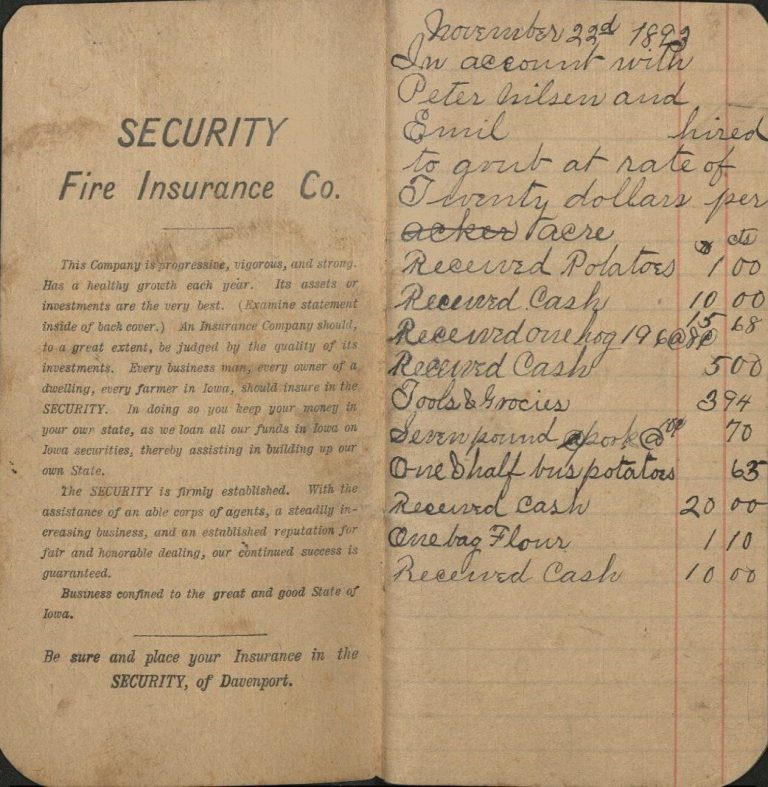 SECURITY
Fire Insurance Co.
This Company is progressive, vigorous, and strong.
Has a healthy growth each year. Its assets or
investments are the very best. (Examine statement
inside of back cover.) An Insurance Company should,
to a great extent, be judged by the quality of its
investments. Every business man, every owner of a
dwelling, every farmer in Iowa, should insure in the
SECURITY. In doing so you keep your money in
your own state, as we loan all our funds in Iowa on
Iowa securities, thereby assisting in building up our
own State.
The SECURITY is firmly established. With the
assistance of an able corps of agents, a steadily in-
creasing business, and an established reputation for
fair and honorable dealing, our continued success is
guaranteed.
Business confined to the great and good State of
Iowa.
Be sure and place your Insurance in the
SECURITY, of Davenport.
November 22d 1893
In account with
Peter Nilsen and
Emil hired
to grub at rate of
Twenty dollars per
acker acre
$ cts
Received Potatoes 1 00
Received Cash 10 00
Received one hog 196@8¢ 15 68
Received Cash 5 00
Tools & Grocies 3 94
Seven pound pork @ 10¢ 70
One & half bus potatoes 65
Received Cash 20 00
One bag Flour 1 10
Received Cash 10 00